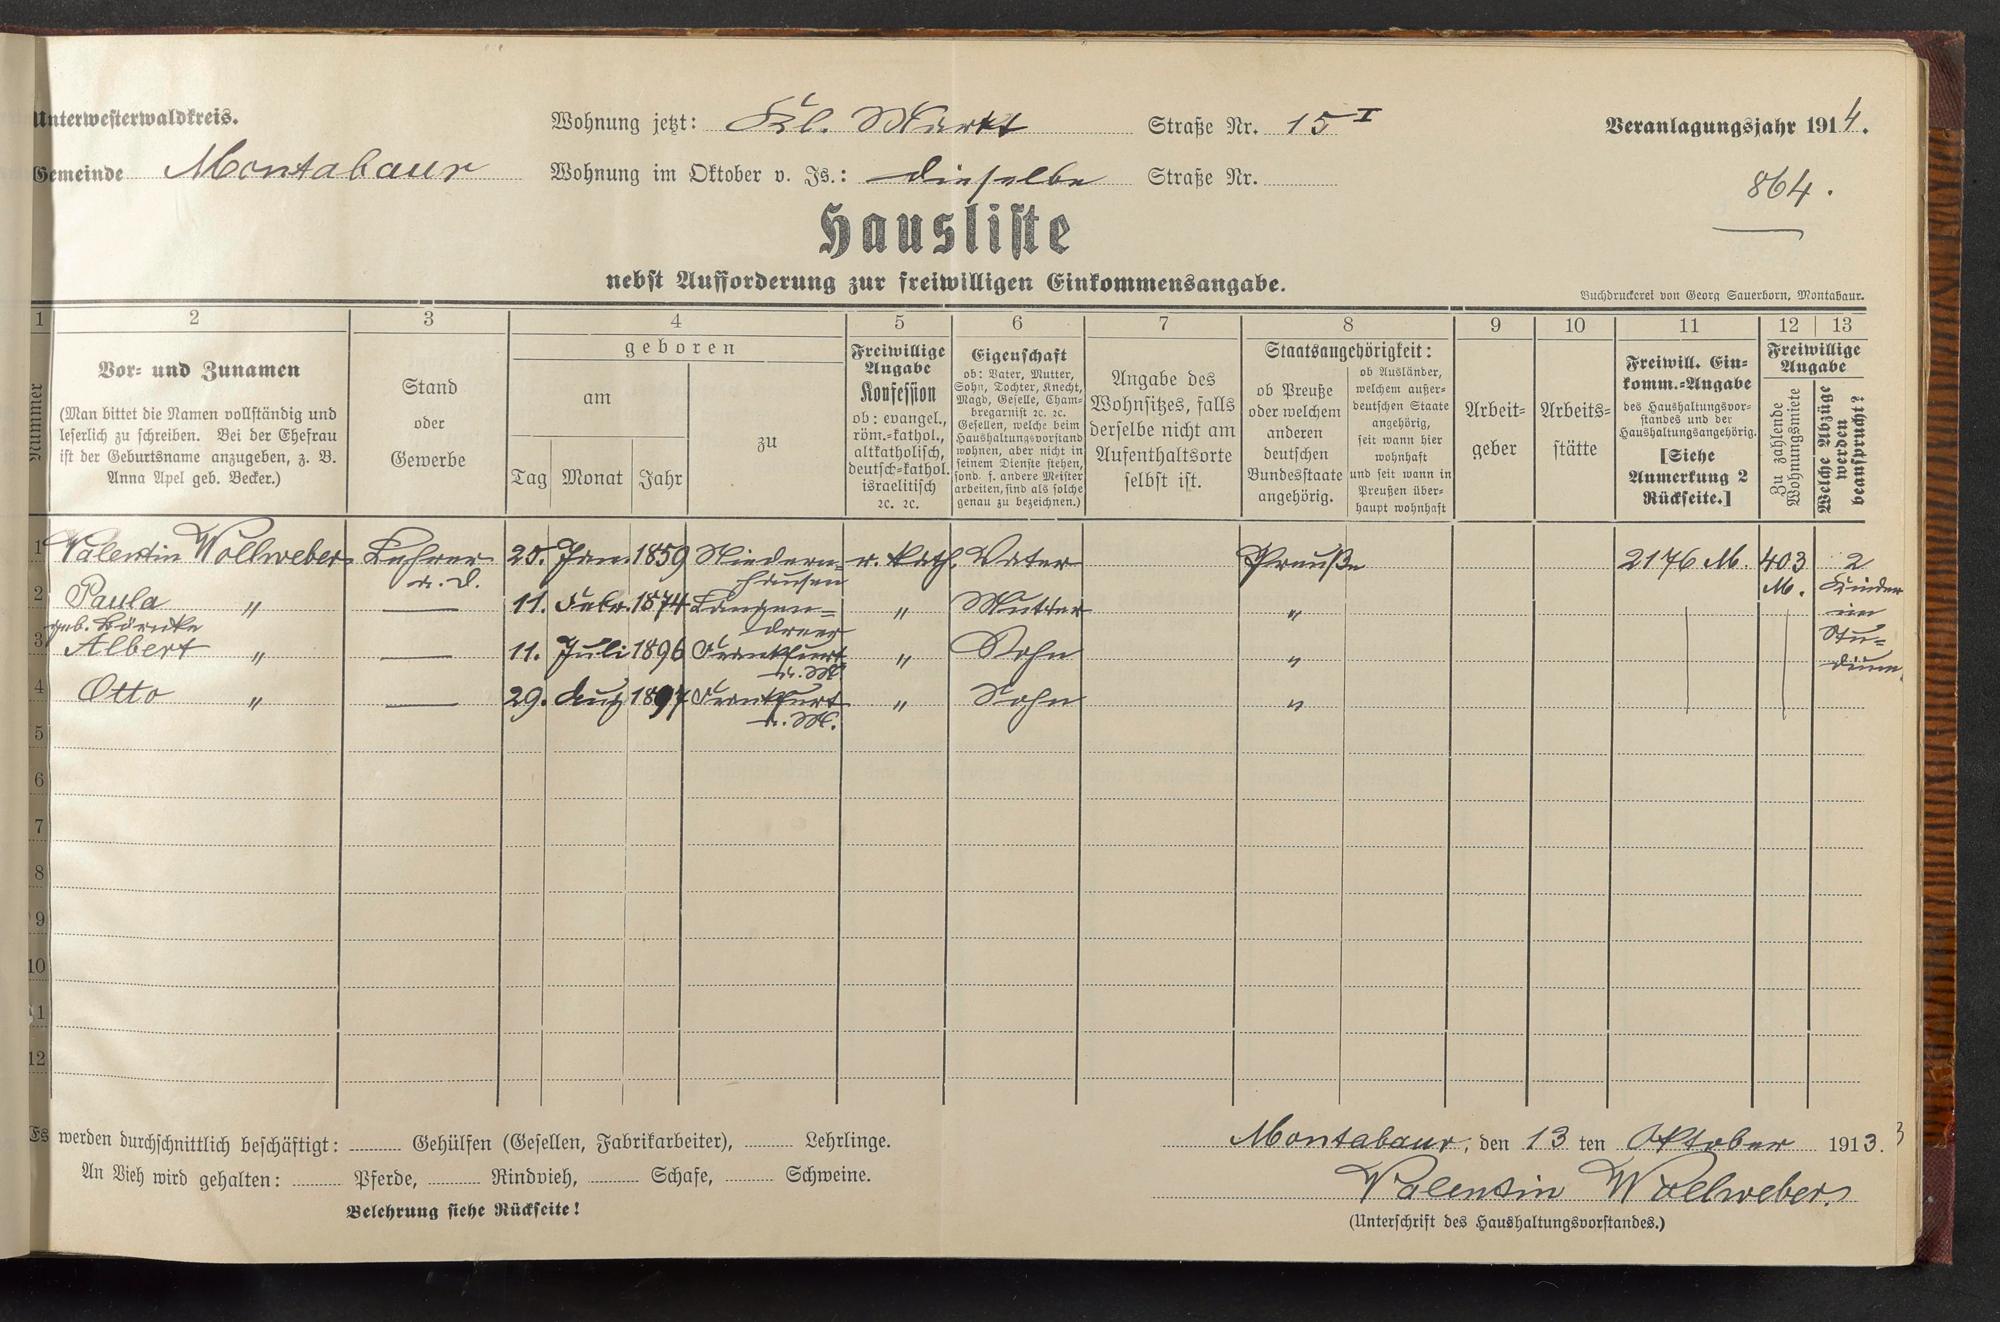 Unterwesterwaldkreis.
Wohnung jetzt: Kl. Markt Straße Nr. 15 I
Veranlagungsjahr 1914.
Gemeinde Montabaur
Wohnung im Oktober v. Js.: dieselbe Straße Nr.
864.
Hausliste
nebst Aufforderung zur freiwilligen Einkommensangabe.
Buchdruckerei von Georg Sauerborn, Montabaur.
1 2 3 4 5 6 7 8 9 10 11 12 13
Nummer
Vor- und Zunamen
(Man bittet die Namen vollständig und
leserlich zu schreiben. Bei der Ehefrau
ist der Geburtsname anzugeben, z. B.
Anna Apel geb. Becker.)
Stand
oder
Gewerbe
geboren
am
Tag Monat Jahr
zu
Freiwillige
Angabe
Konfession
ob: evangel.,
röm.-kathol.,
altkatholisch,
deutsch-kathol.
israelitisch
ꝛc. ꝛc.
Eigenschaft
ob: Vater, Mutter,
Sohn, Tochter, Knecht,
Magd, Geselle, Cham-
bregarnist ꝛc. ꝛc.
Gesellen, welche beim
Haushaltungsvorstand
wohnen, aber nicht in
seinem Dienste stehen,
sond. f. andere Meister
arbeiten, sind als solche
genau zu bezeichnen.)
Angabe des
Wohnsitzes, falls
derselbe nicht am
Aufenthaltsorte
selbst ist.
Staatsangehörigkeit:
ob Preuße
oder welchem
anderen
deutschen
Bundesstaate
angehörig.
ob Ausländer,
welchem außer-
deutschen Staate
angehörig,
seit wann hier
wohnhaft
und seit wann in
Preußen über-
haupt wohnhaft
Arbeit-
geber
Arbeits-
stätte
Freiwill. Ein-
komm.-Angabe
des Haushaltungsvor-
standes und der
Haushaltungsangehörig.
[Siehe
Anmerkung 2
Rückseite.]
Freiwillige
Angabe
Zu zahlende
Wohnungsmiete
Welche Abzüge
werden
beansprucht?
1 Valentin Wollweber Lehrer a. D. 25. Jan. 1859 Niedern-hausen r. kath. Vater Preuße 2176 M. 403 M. 2 Kinder im Stu-dium.
2 Paula " — 11. Febr. 1874 Langen-dreer " Mutter "
geb. Börnke
3 Albert " — 11. Juli 1896 Frankfurt a. M. " Sohn "
4 Otto " — 29. Aug 1897 Frankfurt a. M. " Sohn "
5
6
7
8
9
10
11
12
Es werden durchschnittlich beschäftigt: Gehülfen (Gesellen, Fabrikarbeiter), Lehrlinge.
An Vieh wird gehalten: Pferde, Rindvieh, Schafe, Schweine.
Belehrung siehe Rückseite!
Montabaur, den 13 ten Oktober 1913.
Valentin Wollweber.
(Unterschrift des Haushaltungsvorstandes.)